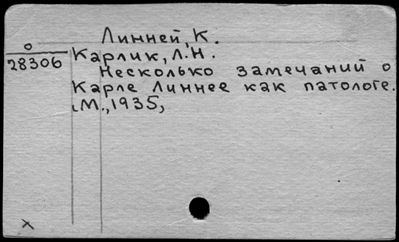 Линней, К.
о
28306
Карлик, Л.Н.
Несколько замечаний о
Карле Линнее как патологе.
М., 1935,
х